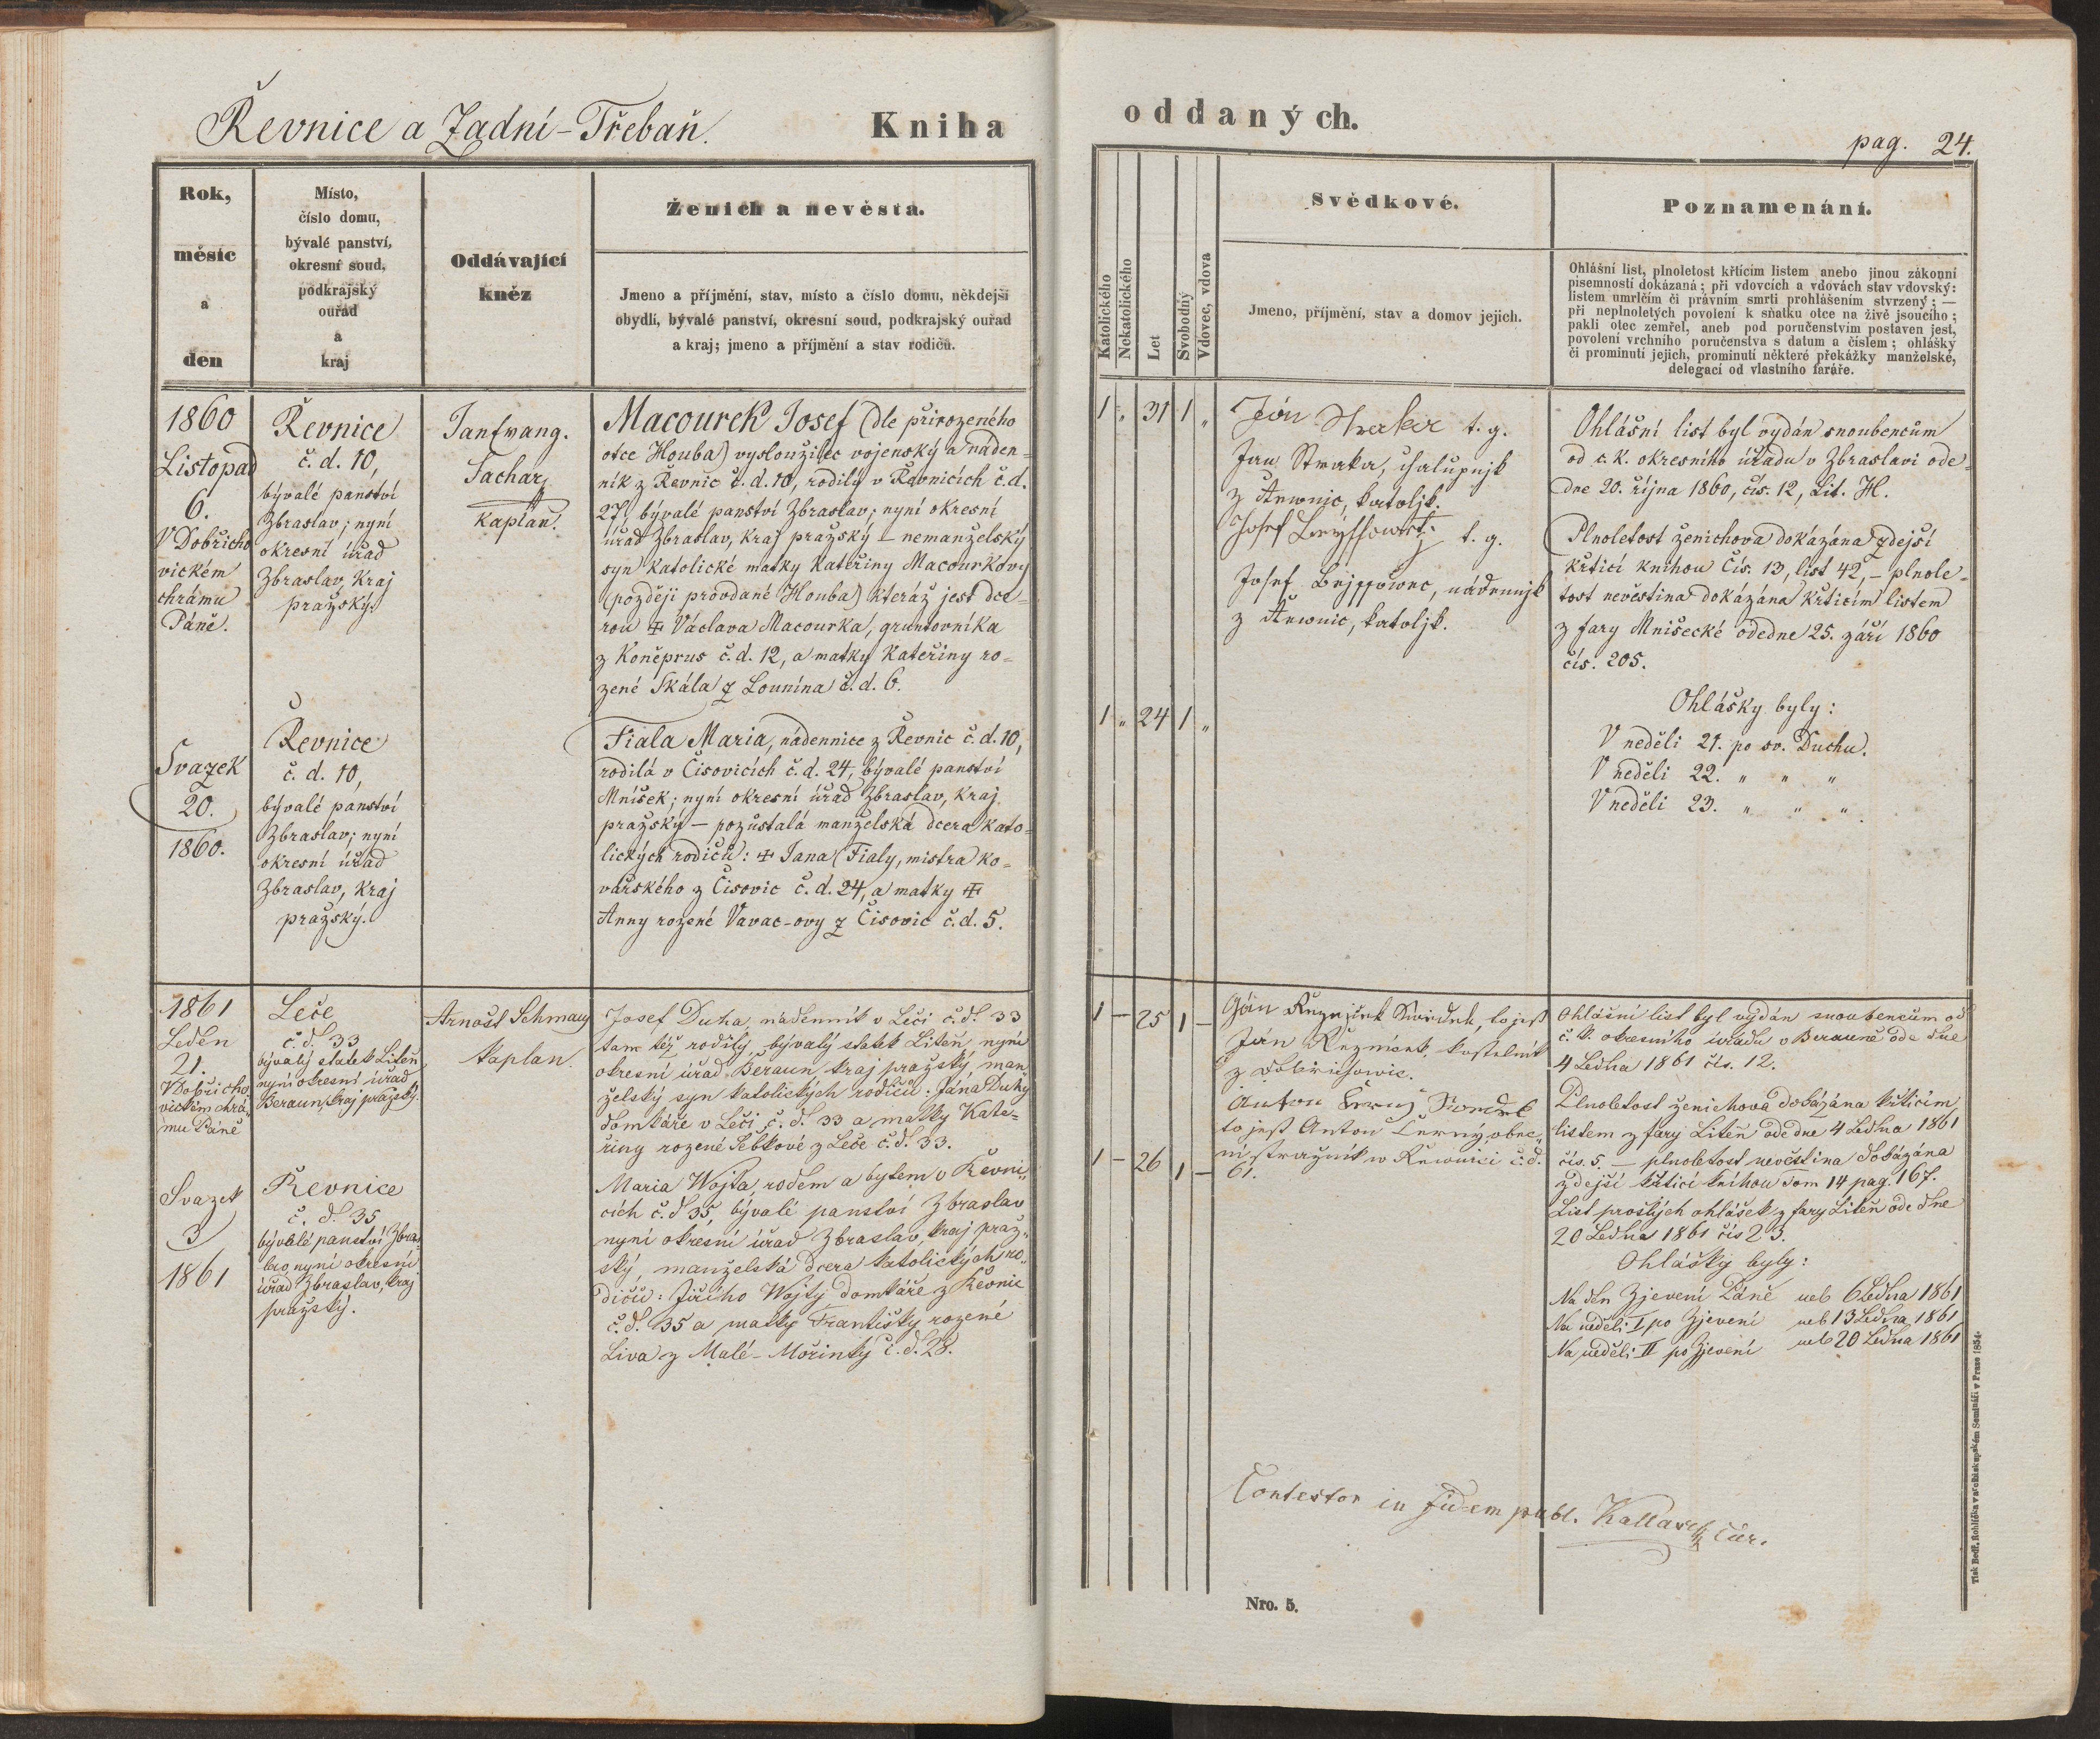 Řevnice a Zadní-Třebaň.
Kniha
oddaných.
pag. 24.
Rok,
měsíc
a
den
Místo,
číslo domu,
bývalé panství,
okresní soud,
podkrajský
ouřad
a
kraj
Oddávající
kněz
Ženich a nevěsta.
Jmeno a příjmění, stav, místo a číslo domu, někdejší
obydlí, bývalé panství, okresní soud, podkrajský ouřad
a kraj; jmeno a příjmění a stav rodičů.
Katolického
Nekatolického
Let
Svobodný
Vdovec, vdova
Svědkové.
Jmeno, příjmění, stav a domov jejich.
Poznamenání.
Ohlášní list, plnoletost křtícím listem anebo jinou zákonní
písemností dokázaná; při vdovcích a vdovách stav vdovský:
listem umrlčím či právním smrti prohlášením stvrzený; —
při neplnoletých povolení k sňatku otce na živě jsoucího;
pakli otec zemřel, aneb pod poručenstvím postaven jest,
povolení vrchního poručenstva s datum a číslem; ohlášky
či prominutí jejich, prominutí některé překážky manželské,
delegací od vlastního faráře.
1860
Listopad
6.
V Dobřicho
vickém
chrámu
Páně.
Svazek
20.
1860.
Řevnice
č. d. 10,
bývalé panství
Zbraslav; nyní
okresní úřad
Zbraslav, Kraj
pražský.
Řevnice
č. d. 10,
bývalé panství
Zbraslav; nyní
okresní úřad
Zbraslav, Kraj
pražský.
Sachar,
Kaplan.
Macourek Josef (dle přirozeného
otce Houba) vysloužilec vojenský a náden-
ník z Řevnic č. d. 10, rodilý v Řevnicích č. d.
27, bývalé panství Zbraslav; nyní okresní
úřad Zbraslav, Kraj pražský – nemanželský
syn katolické matky Kateřiny Macourkovy
(později provdané Houba) kteráž jest dce-
rou ✠ Václava Macourka, gruntovníka
z Koněprus č. d. 12, a matky Kateřiny ro-
zené Skála z Lounína č. d. 6.
Fiala Maria, nádennice z Řevnic č. d. 10,
rodilá v Čisovicích č. d. 24, bývalé panství
Mníšek; nyní okresní úřad Zbraslav, Kraj
pražský – pozůstalá manželská dcera kato-
lických rodičů: ✠ Jana Fialy, mistra ko-
vářského z Čisovic č. d. 24, a matky ✠
Anny rozené Vavac-ovy z Čisovic č. d. 5.
1 „ 31 1 „
1 „ 24 1 „
Ján Straka t. g.
Jan Straka, chalupnjk
z Řewnic, katoljk.
Josef t. g.
Josef nádennjk
z Řewnic, katoljk.
Ohlášní list byl vydán snoubencům
od c. k. okresního úřadu v Zbraslavi ode-
dne 20. října 1860, čís. 12, Lit. H.
Plnoletost ženichova dokázána zdejší
křticí knihou Čís. 13, list 42, – plnole-
tost nevěstina dokázána křticím listem
z fary Mníšecké odedne 25. září 1860
čís. 205.
Ohlášky byly:
V neděli 21. po sv. Duchu.
V neděli 22. „ „ „
V neděli 23. „ „ „
1861
Leden
21.
V Dobřicho
vickém chrá-
mu Páně
Svazek
3
1861
Leče
č. d. 33
bývalý statek Liteň
nyní okresní úřad
Beraun, kraj pražský.
Řevnice
č. d. 35
bývalé panství Zbra-
slav, nyní okresní
úřad Zbraslav, kraj
pražský.
Arnošt Schmaus
kaplan.
Josef Duha, nádenník v Leči č. d. 33
tam též rodilý, bývalý statek Liteň, nyní
okresní úřad Beraun, kraj pražský, man-
želský syn katolických rodičů: Jána Duhy
domkáře v Leči č. d. 33 a matky Kate-
řiny rozené Sebkové z Leče č. d. 33.
Maria Wojta rodem a bytem v Řevni-
cích č. d 35, bývalé panství Zbraslav
nyní okresní úřad Zbraslav, kraj praž-
ský, manželská dcera katolických ro-
dičů: Jiřího Wojty domkáře z Řevnic
č. d. 35 a matky Františky rozené
Liva z Malé-Mořinky č. d. 28.
1 – 25 1 –
1 – 26 1 –
Ján Ruzniček Swědek, to jest
Ján Různiček, kostelník
z Dobřichowic.
Anton Černý Swědek
to jest Anton Černý, obec-
ní strážník w Řewnici č. d.
61.
Ohlášní list byl vydán snoubencům od
č. k. okresního úřadu v Berauně ode dne
4 Ledna 1861 čís. 12.
Plnoletost ženichova dokázána křticím
listem z fary Liteň ode dne 4 Ledna 1861
čís. 5. – plnoletost nevěstina dokázána
zdejší křticí knihou Tom 14 pag. 167.
List prošlých ohlášek z fary Liteň ode dne
20 Ledna 1861 čís 23.
Ohlášky byly:
Na den Zjevení Páně neb 6 Ledna 1861
Na neděli I po Zjevení neb 13 Ledna 1861
Na neděli II po Zjevení neb 20 Ledna 1861
Contestor in fidem publ. Kallasch Cur.
Nro. 5.
Tisk Bedř. Rohlíčka v arcibiskupském Semináři v Praze 1854.